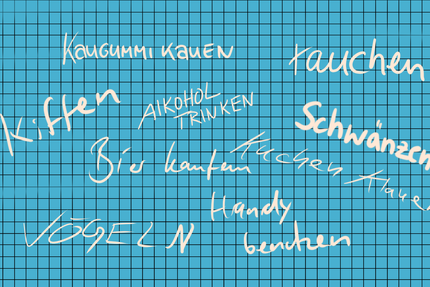 KAUGUMMI KAUEN
rauchen
Kiffen
ALKOHOL
TRINKEN
Schwänzen
Bier kaufen
Kuchen klauen
VÖGELN
Handy
benutzen